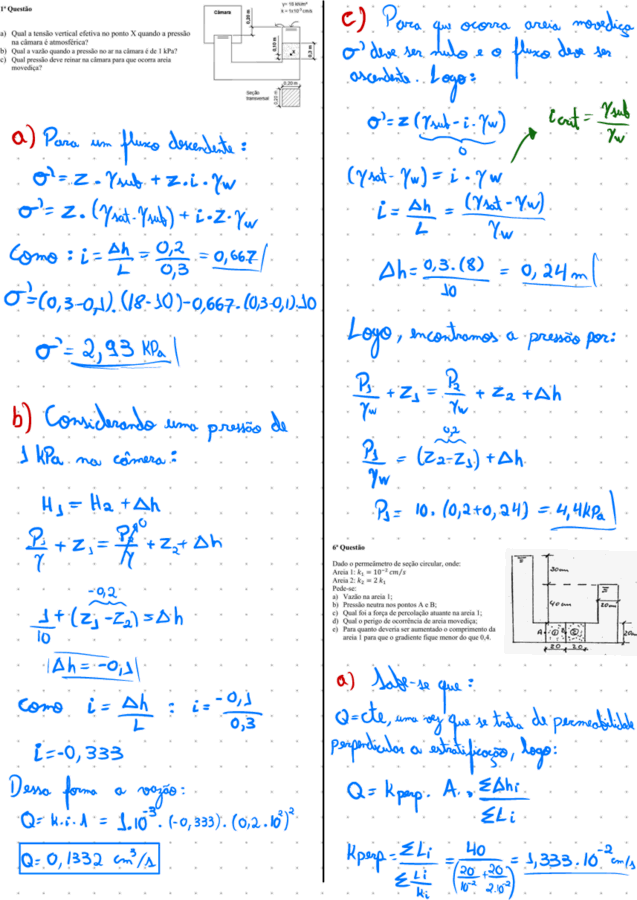 1ª Questão
a) Qual a tensão vertical efetiva no ponto X quando a pressão
na câmara é atmosférica?
b) Qual a vazão quando a pressão no ar na câmara é de 1 kPa?
c) Qual pressão deve reinar na câmara para que ocorra areia
movediça?
Câmara
0,20 m
0,10 m
0,3 m
x
0,20 m
Seção
transversal
0,20 m
a) Para um fluxo descendente:
σ' = z . γsub + z.i. γw
σ' = z. (γsat - γsub) + i.z.γw
Como : i = Δh/L = 0,2/0,3 = 0,667
σ' = (0,3-0,1).(18-10)-0,667.(0,3-0,1).10
σ' = 2,93 KPa
b) Considerando uma pressão de
1 kPa na câmera:
H1 = H2 + Δh
P1/γ + Z1 = P2/γ + Z2 + Δh
0
-0,2
1/10 + (Z1-Z2) = Δh
Δh = -0,1
como i = Δh/L : i = -0,1/0,3
i = -0,333
Dessa forma a vazão:
Q = k.i.A = 1.10^-3 . (-0,333) . (0,2.10^2)^2
Q = 0,1332 cm³/s
c) Para que ocorra areia movediça
σ' deve ser nulo e o fluxo deve ser
ascendente. Logo:
σ' = z (γsub - i. γw)
0
i crit = γsub/γw
(γsat - γw) = i . γw
i = Δh/L = (γsat - γw)/γw
Δh = 0,3.(8)/10 = 0,24 m
Logo, encontramos a pressão por:
P1/γw + Z1 = P2/γw + Z2 + Δh
0,2
P1/γw = (Z2-Z1) + Δh
P1 = 10. (0,2+0,24) = 4,4kPa
6ª Questão
Dado o permeâmetro de seção circular, onde:
Areia 1: k1 = 10^-2 cm/s
Areia 2: k2 = 2 k1
Pede-se:
a) Vazão na areia 1;
b) Pressão neutra nos pontos A e B;
c) Qual foi a força de percolação atuante na areia 1;
d) Qual o perigo de ocorrência de areia movediça;
e) Para quanto deveria ser aumentado o comprimento da
areia 1 para que o gradiente fique menor do que 0,4.
30 cm
40 cm
20 cm
A
1
2
20
a) Sabe-se que :
Q = cte, uma vez que se trata de permeabilidade
perpendicular a estratificação, logo:
Q = Kperp. A. ΣΔhi/ΣLi
Kperp = ΣLi/Σ(Li/ki) = 40/(20/10^-2 + 20/2.10^-2) = 1,333.10^-2 cm/s